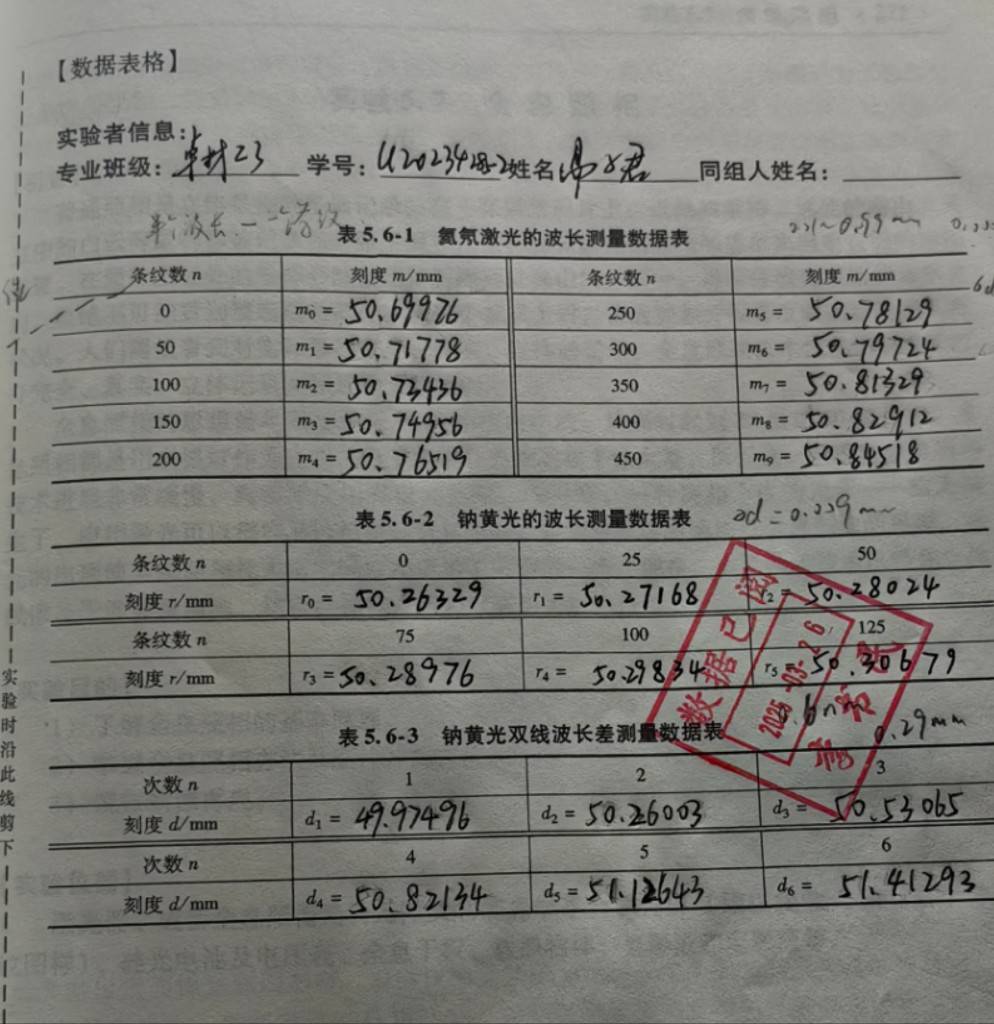 【数据表格】
实验者信息:
专业班级: 卓材23 学号: 姓名 同组人姓名:
表 5.6-1 氦氖激光的波长测量数据表
条纹数 n 刻度 m/mm 条纹数 n 刻度 m/mm
0 m₀ = 50.69976 250 m₅ = 50.78129
50 m₁ = 50.71778 300 m₆ = 50.79724
100 m₂ = 50.73436 350 m₇ = 50.81329
150 m₃ = 50.74956 400 m₈ = 50.82912
200 m₄ = 50.76519 450 m₉ = 50.84518
表 5.6-2 钠黄光的波长测量数据表
条纹数 n 0 25 50
刻度 r/mm r₀ = 50.26329 r₁ = 50.27168 r₂ = 50.28024
条纹数 n 75 100 125
刻度 r/mm r₃ = 50.28976 r₄ = 50.29834 r₅ = 50.30679
数据已阅
2025-03-26
0.6nm
0.29mm
表 5.6-3 钠黄光双线波长差测量数据表
次数 n 1 2 3
刻度 d/mm d₁ = 49.97496 d₂ = 50.26003 d₃ = 50.53065
次数 n 4 5 6
刻度 d/mm d₄ = 50.82134 d₅ = 51.12643 d₆ = 51.41293
实验时沿此线剪下